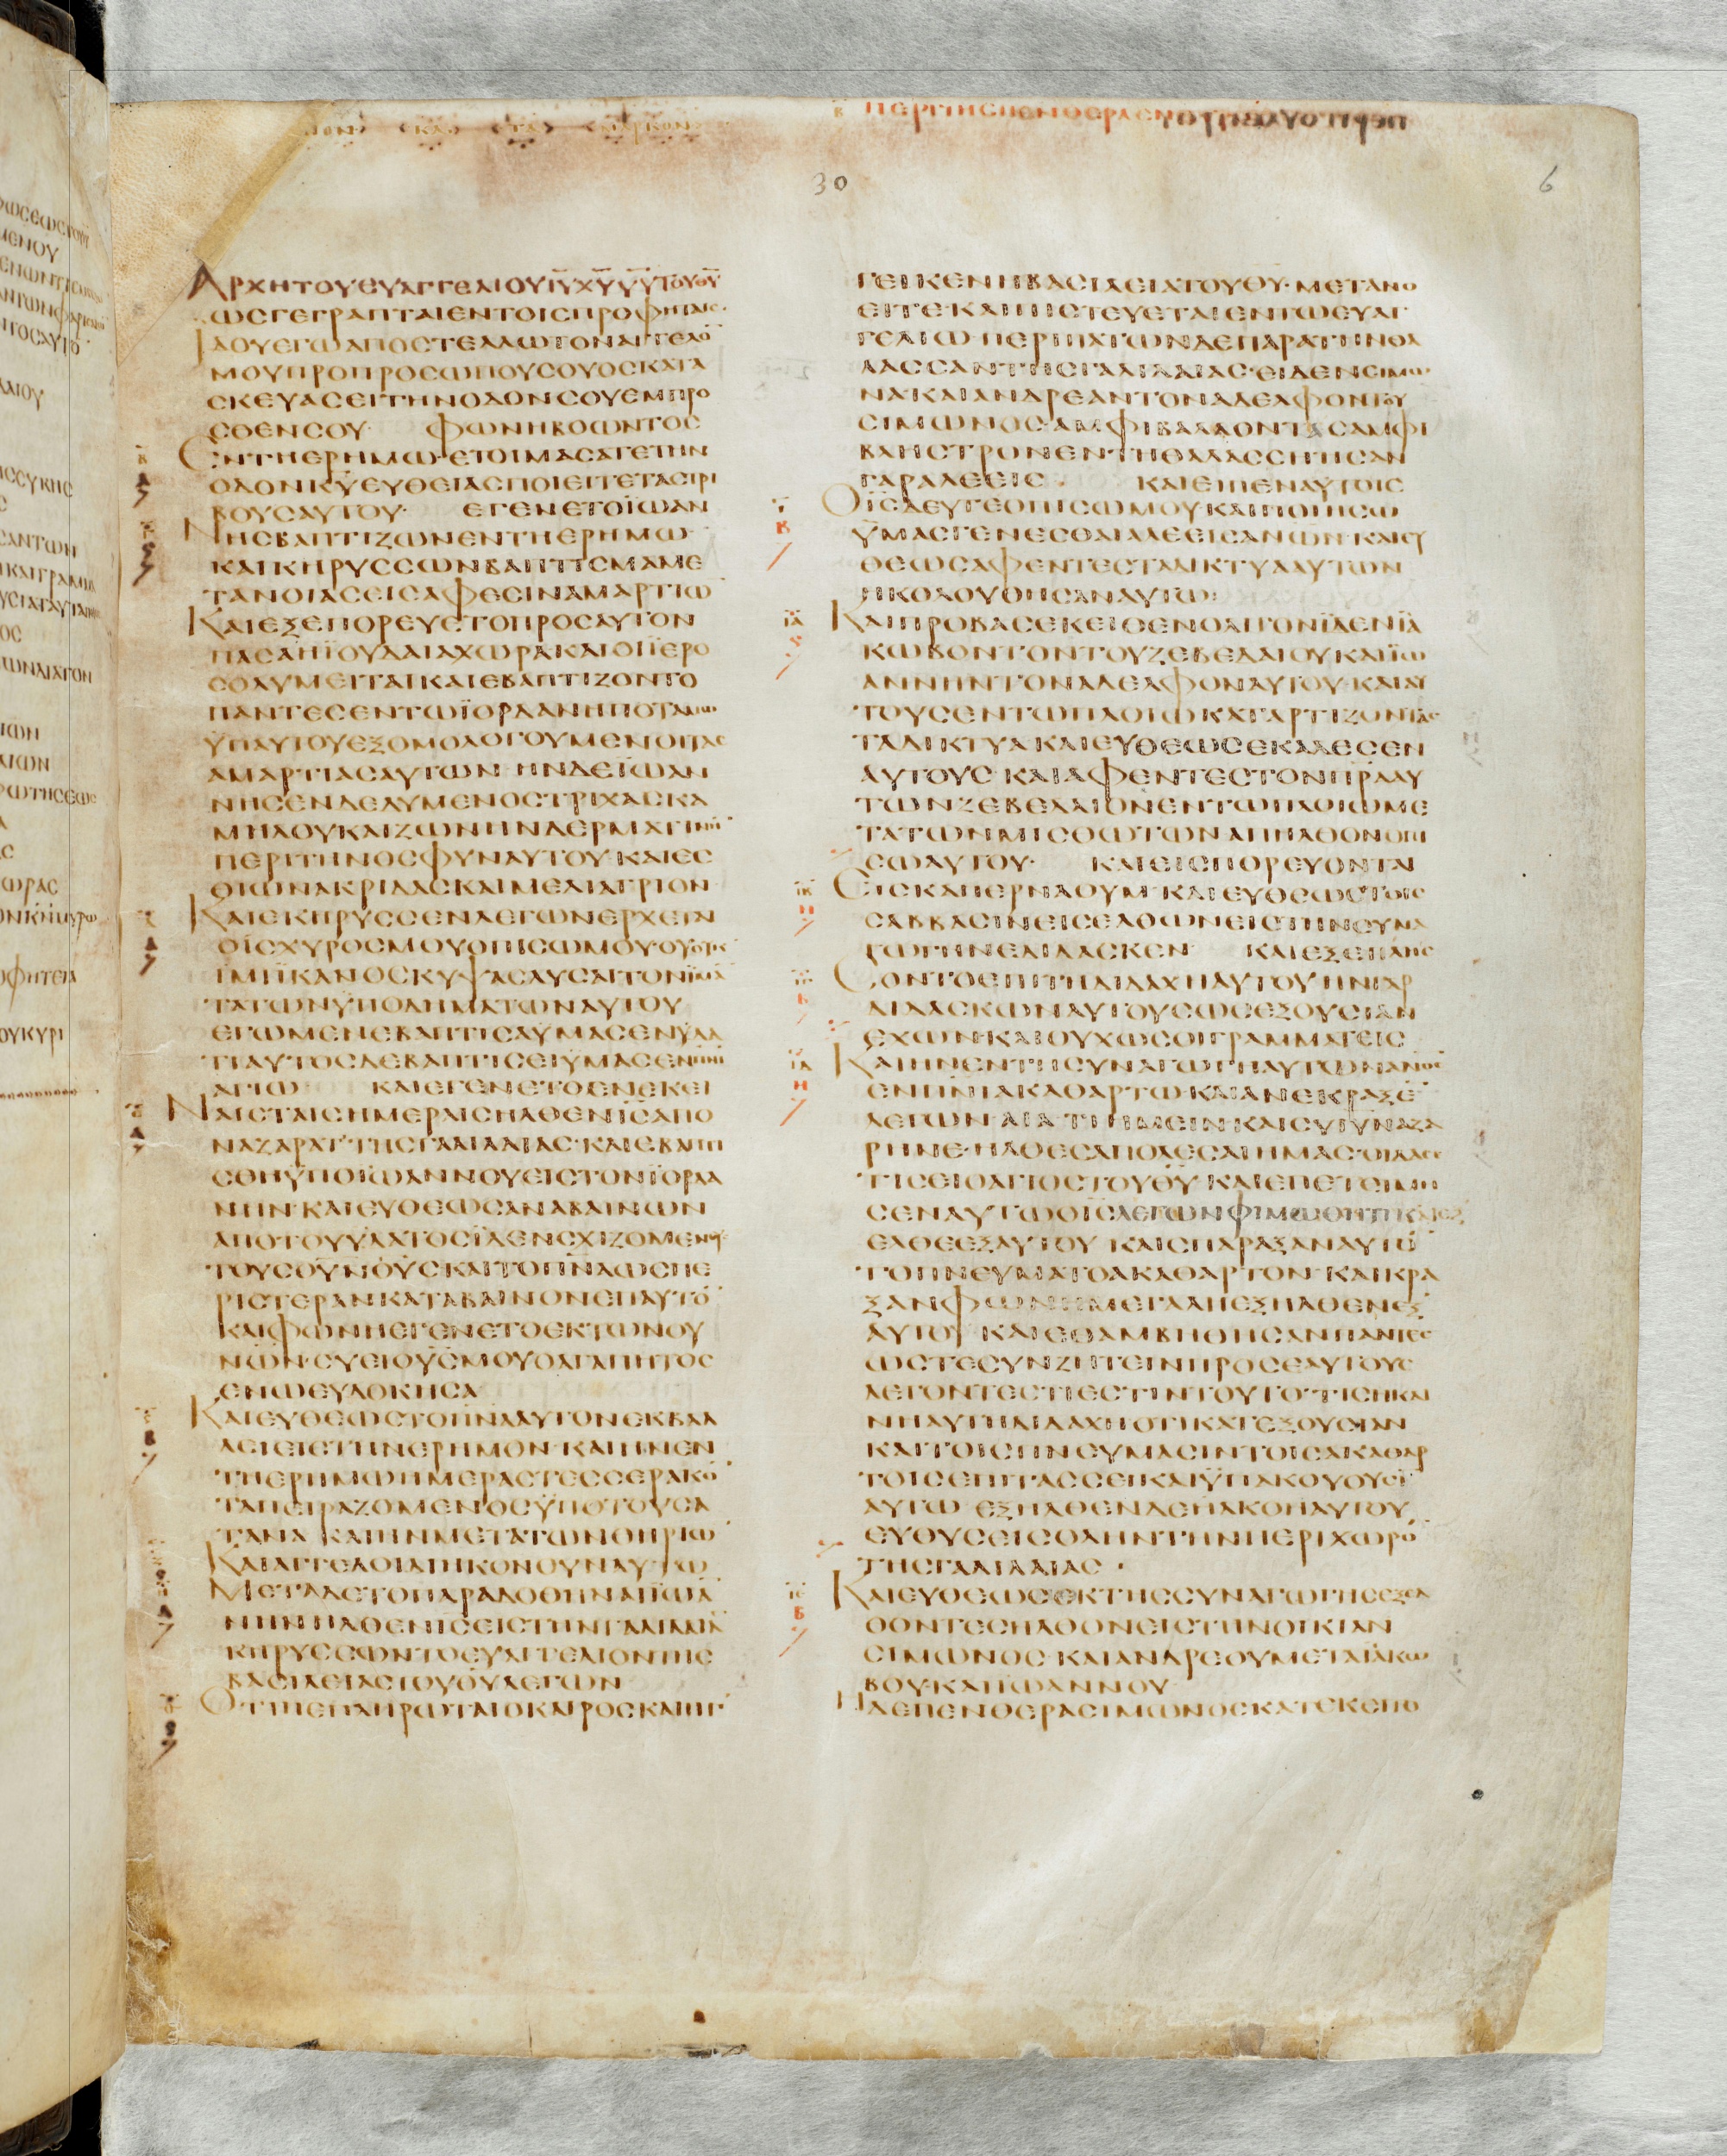 30
6
ΑΡΧΗΤΟΥΕΥΑΓΓΕΛΙΟΥΙ̅Υ̅Χ̅Υ̅Υ̅Υ̅ΤΟΥΘ̅Υ̅
ΩΣΓΕΓΡΑΠΤΑΙΕΝΤΟΙΣΠΡΟΦΗΤΑΙΣ·
ΙΔΟΥΕΓΩΑΠΟΣΤΕΛΛΩΤΟΝΑΓΓΕΛΟ̅
ΜΟΥΠΡΟΠΡΟΣΩΠΟΥΣΟΥΟΣΚΑΤΑ
ΣΚΕΥΑΣΕΙΤΗΝΟΔΟΝΣΟΥΕΜΠΡΟ
ΣΘΕΝΣΟΥ· ΦΩΝΗΒΟΩΝΤΟΣ
ΕΝΤΗΕΡΗΜΩ·ΕΤΟΙΜΑΣΑΤΕΤΗΝ
ΟΔΟΝΚ̅Υ̅ΕΥΘΕΙΑΣΠΟΙΕΙΤΕΤΑΣΤΡΙ
ΒΟΥΣΑΥΤΟΥ· ΕΓΕΝΕΤΟΪΩΑΝ
ΝΗΣΒΑΠΤΙΖΩΝΕΝΤΗΕΡΗΜΩ·
ΚΑΙΚΗΡΥΣΣΩΝΒΑΠΤΙΣΜΑΜΕ
ΤΑΝΟΙΑΣΕΙΣΑΦΕΣΙΝΑΜΑΡΤΙΩ
ΚΑΙΕΞΕΠΟΡΕΥΕΤΟΠΡΟΣΑΥΤΟΝ
ΠΑΣΑΗΪΟΥΔΑΙΑΧΩΡΑΚΑΙΟΙΪΕΡΟ
ΣΟΛΥΜΕΙΤΑΙΚΑΙΕΒΑΠΤΙΖΟΝΤΟ
ΠΑΝΤΕΣΕΝΤΩΪΟΡΔΑΝΗΠΟΤΑΜΩ
ΫΠΑΥΤΟΥΕΞΟΜΟΛΟΓΟΥΜΕΝΟΙΤΑΣ
ΑΜΑΡΤΙΑΣΑΥΤΩΝ·ΗΝΔΕΪΩΑΝ
ΝΗΣΕΝΔΕΔΥΜΕΝΟΣΤΡΙΧΑΣΚΑ
ΜΗΛΟΥΚΑΙΖΩΝΗΝΔΕΡΜΑΤΙΝΗ̅
ΠΕΡΙΤΗΝΟΣΦΥΝΑΥΤΟΥ·ΚΑΙΕΣ
ΘΙΩΝΑΚΡΙΔΑΣΚΑΙΜΕΛΙΑΓΡΙΟΝ
ΚΑΙΕΚΗΡΥΣΣΕΝΛΕΓΩΝΕΡΧΕΤΑΙ
ΟΪΣΧΥΡΟΣΜΟΥΟΠΙΣΩΜΟΥ·ΟΥΟΥΚ
ΙΜΪΚΑΝΟΣΚΥΨΑΣΛΥΣΑΙΤΟΝΙΜΑ̅
ΤΑΤΩΝΫΠΟΔΗΜΑΤΩΝΑΥΤΟΥ
ΕΓΩΜΕΝΕΒΑΠΤΙΣΑΫΜΑΣΕΝΫΔΑ
ΤΙΑΥΤΟΣΔΕΒΑΠΤΙΣΕΙΫΜΑΣΕΝΠ̅Ν̅Ι̅
ΑΓΙΩ ΚΑΙΕΓΕΝΕΤΟΕΝΕΚΕΙ
ΝΑΙΣΤΑΙΣΗΜΕΡΑΙΣΗΛΘΕΝΙ̅Σ̅ΑΠΟ
ΝΑΖΑΡΑΤʼΤΗΣΓΑΛΙΛΑΙΑΣ·ΚΑΙΕΒΑΠΤΙ
ΣΘΗΫΠΟΪΩΑΝΝΟΥΕΙΣΤΟΝΪΟΡΔΑ
ΝΗΝ·ΚΑΙΕΥΘΕΩΣΑΝΑΒΑΙΝΩΝ
ΑΠΟΤΟΥΥΔΑΤΟΣΪΔΕΝΣΧΙΖΟΜΕΝΟΥΣ
ΤΟΥΣΟΥ̅Ν̅Ο̅Υ̅ΣΚΑΙΤΟΠ̅Ν̅Α̅ΩΣΠΕ
ΡΙΣΤΕΡΑΝΚΑΤΑΒΑΙΝΟΝΕΠΑΥΤΟ̅
ΚΑΙΦΩΝΗΕΓΕΝΕΤΟΕΚΤΩΝΟΥ
ΝΩ̅Ν·ΣΥΕΙΟΥ̅Σ̅ΜΟΥΟΑΓΑΠΗΤΟΣ
ΕΝΩΕΥΔΟΚΗΣΑ
ΚΑΙΕΥΘΕΩΣΤΟΠ̅Ν̅Α̅ΑΥΤΟΝΕΚΒΑΛ
ΛΕΙΕΙΣΤΗΝΕΡΗΜΟΝ·ΚΑΙΗΝΕΝ
ΤΗΕΡΗΜΩΗΜΕΡΑΣΤΕΣΣΕΡΑΚΟ̅
ΤΑΠΕΙΡΑΖΟΜΕΝΟΣΫΠΟΤΟΥΣΑ
ΤΑΝΑ ΚΑΙΗΝΜΕΤΑΤΩΝΘΗΡΙΩ̅
ΚΑΙΑΓΓΕΛΟΙΔΙΗΚΟΝΟΥΝΑΥΤΩ
ΜΕΤΑΔΕΤΟΠΑΡΑΔΟΘΗΝΑΙΪΩΑ̅
ΝΗΝΗΛΘΕΝΙ̅Σ̅ΕΙΣΤΗΝΓΑΛΙΛΑΙΑ̅
ΚΗΡΥΣΣΩΝΤΟΕΥΑΓΓΕΛΙΟΝΤΗΣ
ΒΑΣΙΛΕΙΑΣΤΟΥΘ̅Υ̅ΛΕΓΩΝ
ΟΤΙΠΕΠΛΗΡΩΤΑΙΟΚΑΙΡΟΣΚΑΙΗΓ
ΓΕΙΚΕΝΗΒΑΣΙΛΕΙΑΤΟΥΘ̅Υ̅·ΜΕΤΑΝΟ
ΕΙΤΕΚΑΙΠΙΣΤΕΥΕΤΑΙΕΝΤΩΕΥΑΓ
ΓΕΛΙΩ·ΠΕΡΙΠΑΤΩΝΔΕΠΑΡΑΤΗΝΘΑ
ΛΑΣΣΑΝΤΗΣΓΑΛΙΛΑΙΑΣ·ΕΙΔΕΝΣΙΜΩ
ΝΑΚΑΙΑΝΔΡΕΑΝΤΟΝΑΔΕΛΦΟΝΤΟΥ
ΣΙΜΩΝΟΣ·ΑΜΦΙΒΑΛΛΟΝΤΑΣΑΜΦΙ
ΒΛΗΣΤΡΟΝΕΝΤΗΘΑΛΑΣΣΗΗΣΑΝ
ΓΑΡΑΛΕΕΙΣ · ΚΑΙΕΙΠΕΝΑΥΤΟΙΣ
ΟΪ̅Σ̅ΔΕΥΤΕΟΠΙΣΩΜΟΥΚΑΙΠΟΙΗΣΩ
ΫΜΑΣΓΕΝΕΣΘΑΙΑΛΕΕΙΣΑΝΩ̅Ν̅·ΚΑΙΕΥ
ΘΕΩΣΑΦΕΝΤΕΣΤΑΔΙΚΤΥΑΑΥΤΩΝ
ΗΚΟΛΟΥΘΗΣΑΝΑΥΤΩ:
ΚΑΙΠΡΟΒΑΣΕΚΕΙΘΕΝΟΛΙΓΟΝΪΔΕΝΪΑ
ΚΩΒΟΝΤΟΝΤΟΥΖΕΒΕΔΑΙΟΥΚΑΙΪΩ
ΑΝΝΗΝΤΟΝΑΔΕΛΦΟΝΑΥΤΟΥ·ΚΑΙΑΥ
ΤΟΥΣΕΝΤΩΠΛΟΙΩΚΑΤΑΡΤΙΖΟΝΤΑΣ
ΤΑΔΙΚΤΥΑΚΑΙΕΥΘΕΩΣΕΚΑΛΕΣΕΝ
ΑΥΤΟΥΣ·ΚΑΙΑΦΕΝΤΕΣΤΟΝΠ̅Ρ̅Α̅ΑΥ
ΤΩΝΖΕΒΕΔΑΙΟΝΕΝΤΩΠΛΟΙΩΜΕ
ΤΑΤΩΝΜΙΣΘΩΤΩΝΑΠΗΛΘΟΝΟΠΙ
ΣΩΑΥΤΟΥ· ΚΑΙΕΙΣΠΟΡΕΥΟΝΤΑΙ
ΕΙΣΚΑΠΕΡΝΑΟΥΜ·ΚΑΙΕΥΘΕΩΣΤΟΙΣ
ΣΑΒΒΑΣΙΝΕΙΣΕΛΘΩΝΕΙΣΤΗΝΣΥΝΑ
ΓΩΓΗΝΕΔΙΔΑΣΚΕΝ ΚΑΙΕΞΕΠΛΗΣ
ΣΟΝΤΟΕΠΙΤΗΔΙΔΑΧΗΑΥΤΟΥΗΝΓΑΡ
ΔΙΔΑΣΚΩΝΑΥΤΟΥΣΩΣΕΞΟΥΣΙΑΝ
ΕΧΩΝ·ΚΑΙΟΥΧΩΣΟΙΓΡΑΜΜΑΤΕΙΣ
ΚΑΙΗΝΕΝΤΗΣΥΝΑΓΩΓΗΑΥΤΩΝΑΝΟ̅Σ̅
ΕΝΠ̅Ν̅Ι̅ΑΚΑΘΑΡΤΩ·ΚΑΙΑΝΕΚΡΑΞΕ̅
ΛΕΓΩΝ·
ΡΗΝΕ·ΗΛΘΕΣΑΠΟΛΕΣΑΙΗΜΑΣ·
ΤΙΣΕΙΟΑΓΙΟΣΤΟΥΘ̅Υ̅·ΚΑΙΕΠΕΤΕΙΜΗ
ΣΕΝΑΥΤΩΟΪ̅Σ̅ΛΕΓΩΝΦΙΜΩΘΗΤΙΚΑΙΕΞ
ΕΛΘΕΕΞΑΥΤΟΥ ΚΑΙΣΠΑΡΑΞΑΝΑΥΤΟ̅
ΤΟΠΝΕΥΜΑΤΟΑΚΑΘΑΡΤΟΝ·ΚΑΙΚΡΑ
ΞΑΝΦΩΝΗΜΕΓΑΛΗΕΞΗΛΘΕΝΕΞ
ΑΥΤΟΥ ΚΑΙΕΘΑΜΒΗΘΗΣΑΝΠΑΝΤΕΣ
ΩΣΤΕΣΥΝΖΗΤΕΙΝΠΡΟΣΕΑΥΤΟΥΣ
ΛΕΓΟΝΤΕΣΤΙΕΣΤΙΝΤΟΥΤΟ·ΤΙΣΗΚΑΙ
ΝΗΑΥΤΗΔΙΔΑΧΗΟΤΙΚΑΤΕΞΟΥΣΙΑΝ
ΚΑΙΤΟΙΣΠΝΕΥΜΑΣΙΝΤΟΙΣΑΚΑΘΑΡ
ΤΟΙΣΕΠΙΤΑΣΣΕΙΚΑΙΫΠΑΚΟΥΟΥΣΙ̅
ΑΥΤΩ·ΕΞΗΛΘΕΝΔΕΗΑΚΟΗΑΥΤΟΥ
ΕΥΘΥΣΕΙΣΟΛΗΝΤΗΝΠΕΡΙΧΩΡΟ̅
ΤΗΣΓΑΛΙΛΑΙΑΣ·
ΚΑΙΕΥΘΕΩΣΕΚΤΗΣΣΥΝΑΓΩΓΗΣΕΞΕΛ
ΘΟΝΤΕΣΗΛΘΟΝΕΙΣΤΗΝΟΙΚΙΑΝ
ΣΙΜΩΝΟΣ·ΚΑΙΑΝΔΡΕΟΥΜΕΤΑΪΑΚΩ
ΒΟΥ·ΚΑΙΪΩΑΝΝΟΥ
ΗΔΕΠΕΝΘΕΡΑΣΙΜΩΝΟΣΚΑΤΕΚΕΙΤΟ